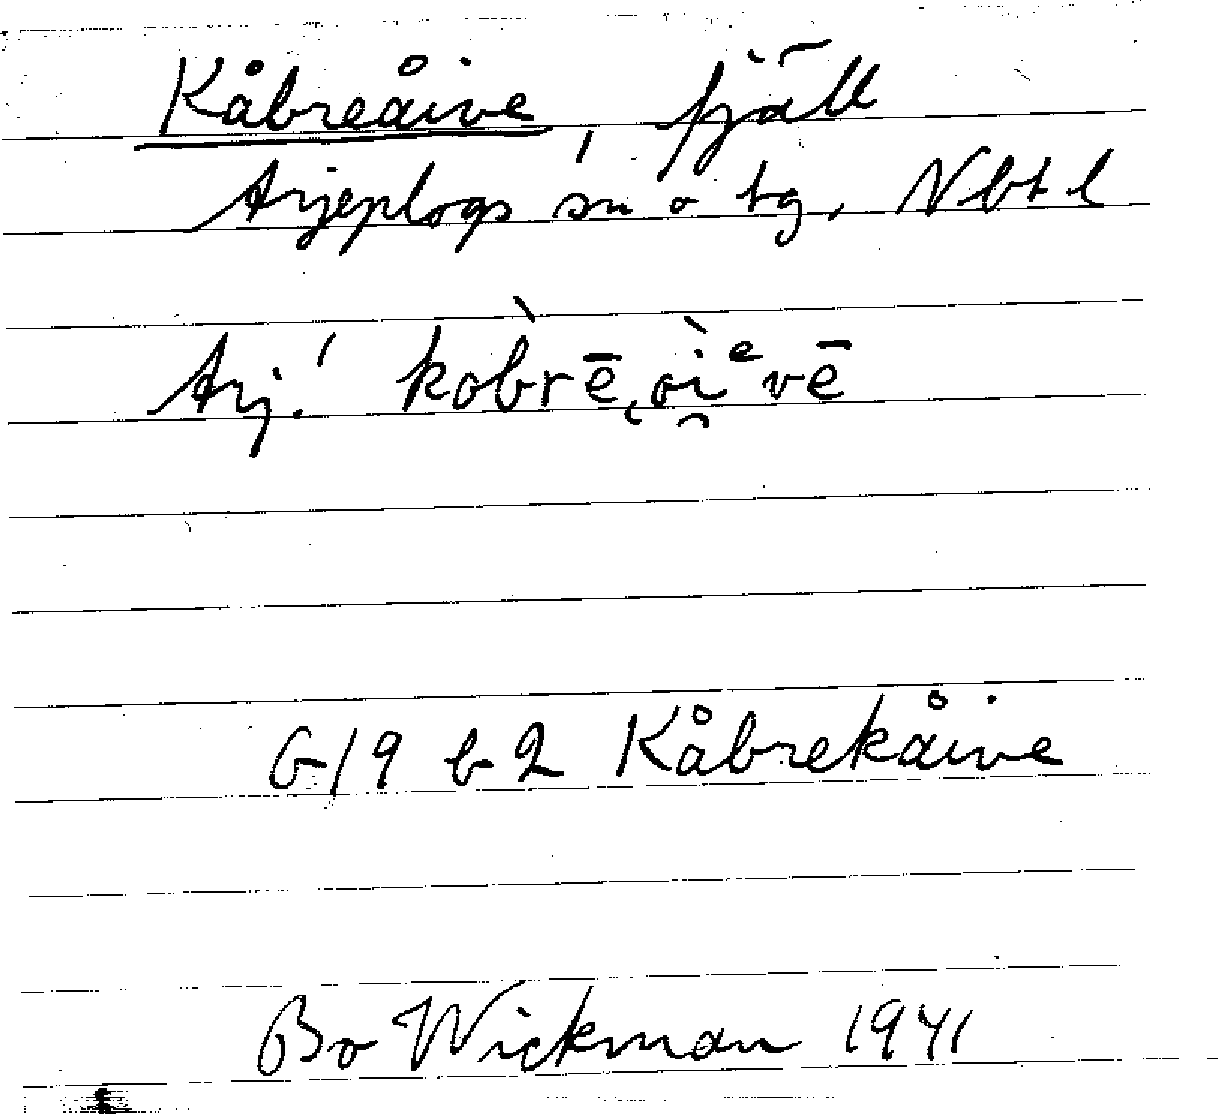 Kåbreåive, fjäll
Arjeplogs sn o tg, Nbtl
Arj.' kobrē̜oi̯ᵉvē
G19 b2 Kåbrekåive
Bo Wickman 1941